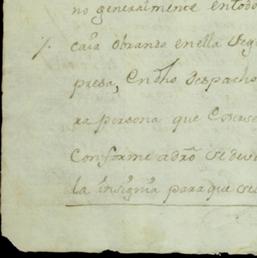 no generalmente en todo
caia obrando en ella seg
presa, en dho Despacho
ra persona que
conforme a dro se deve
la insignia para que se